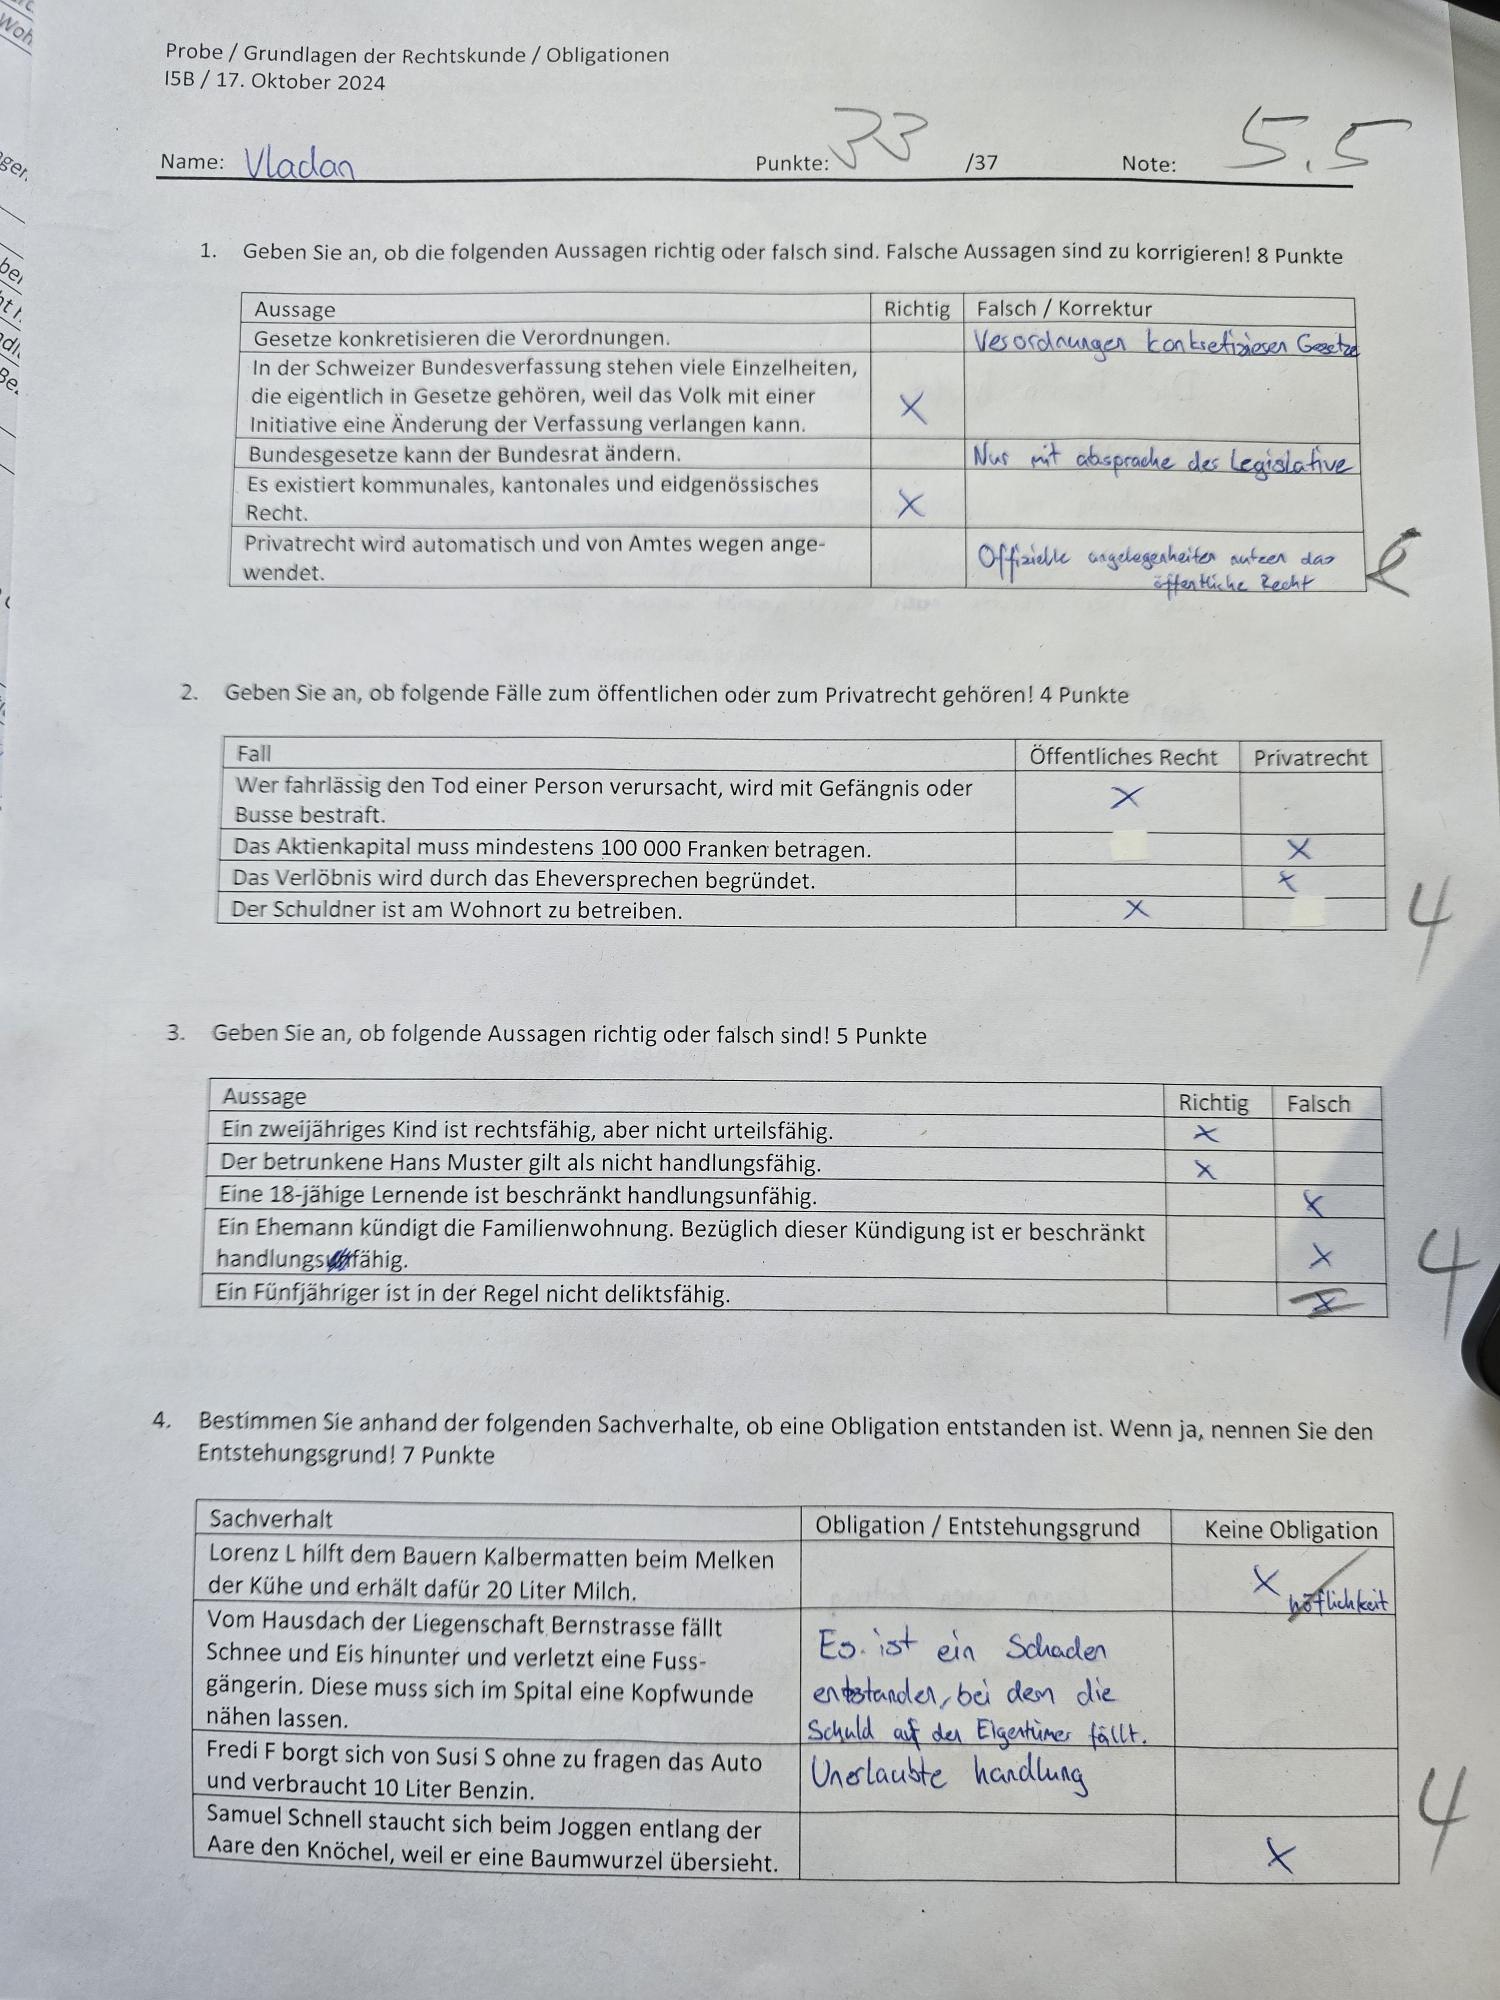 Probe / Grundlagen der Rechtskunde / Obligationen
I5B / 17. Oktober 2024
Name: Vladan Punkte: 33 /37 Note: 5.5
1. Geben Sie an, ob die folgenden Aussagen richtig oder falsch sind. Falsche Aussagen sind zu korrigieren! 8 Punkte
Aussage Richtig Falsch / Korrektur
Gesetze konkretisieren die Verordnungen. Verordnungen konkretisieren Gesetze
In der Schweizer Bundesverfassung stehen viele Einzelheiten,
die eigentlich in Gesetze gehören, weil das Volk mit einer X
Initiative eine Änderung der Verfassung verlangen kann.
Bundesgesetze kann der Bundesrat ändern. Nur mit absprache der Legislative
Es existiert kommunales, kantonales und eidgenössisches X
Recht.
Privatrecht wird automatisch und von Amtes wegen ange- Offizielle angelegenheiten nutzen das
wendet. öffentliche Recht
2. Geben Sie an, ob folgende Fälle zum öffentlichen oder zum Privatrecht gehören! 4 Punkte
Fall Öffentliches Recht Privatrecht
Wer fahrlässig den Tod einer Person verursacht, wird mit Gefängnis oder X
Busse bestraft.
Das Aktienkapital muss mindestens 100 000 Franken betragen. X
Das Verlöbnis wird durch das Eheversprechen begründet. X
Der Schuldner ist am Wohnort zu betreiben. X 4
3. Geben Sie an, ob folgende Aussagen richtig oder falsch sind! 5 Punkte
Aussage Richtig Falsch
Ein zweijähriges Kind ist rechtsfähig, aber nicht urteilsfähig. X
Der betrunkene Hans Muster gilt als nicht handlungsfähig. X
Eine 18-jähige Lernende ist beschränkt handlungsunfähig. X
Ein Ehemann kündigt die Familienwohnung. Bezüglich dieser Kündigung ist er beschränkt
handlungsfähig. X 4
Ein Fünfjähriger ist in der Regel nicht deliktsfähig. X
4. Bestimmen Sie anhand der folgenden Sachverhalte, ob eine Obligation entstanden ist. Wenn ja, nennen Sie den
Entstehungsgrund! 7 Punkte
Sachverhalt Obligation / Entstehungsgrund Keine Obligation
Lorenz L hilft dem Bauern Kalbermatten beim Melken X
der Kühe und erhält dafür 20 Liter Milch. höflichkeit
Vom Hausdach der Liegenschaft Bernstrasse fällt Es ist ein Schaden
Schnee und Eis hinunter und verletzt eine Fuss- entstanden, bei dem die
gängerin. Diese muss sich im Spital eine Kopfwunde Schuld auf der Eigentümer fällt.
nähen lassen.
Fredi F borgt sich von Susi S ohne zu fragen das Auto Unerlaubte handlung
und verbraucht 10 Liter Benzin. 4
Samuel Schnell staucht sich beim Joggen entlang der
Aare den Knöchel, weil er eine Baumwurzel übersieht. X